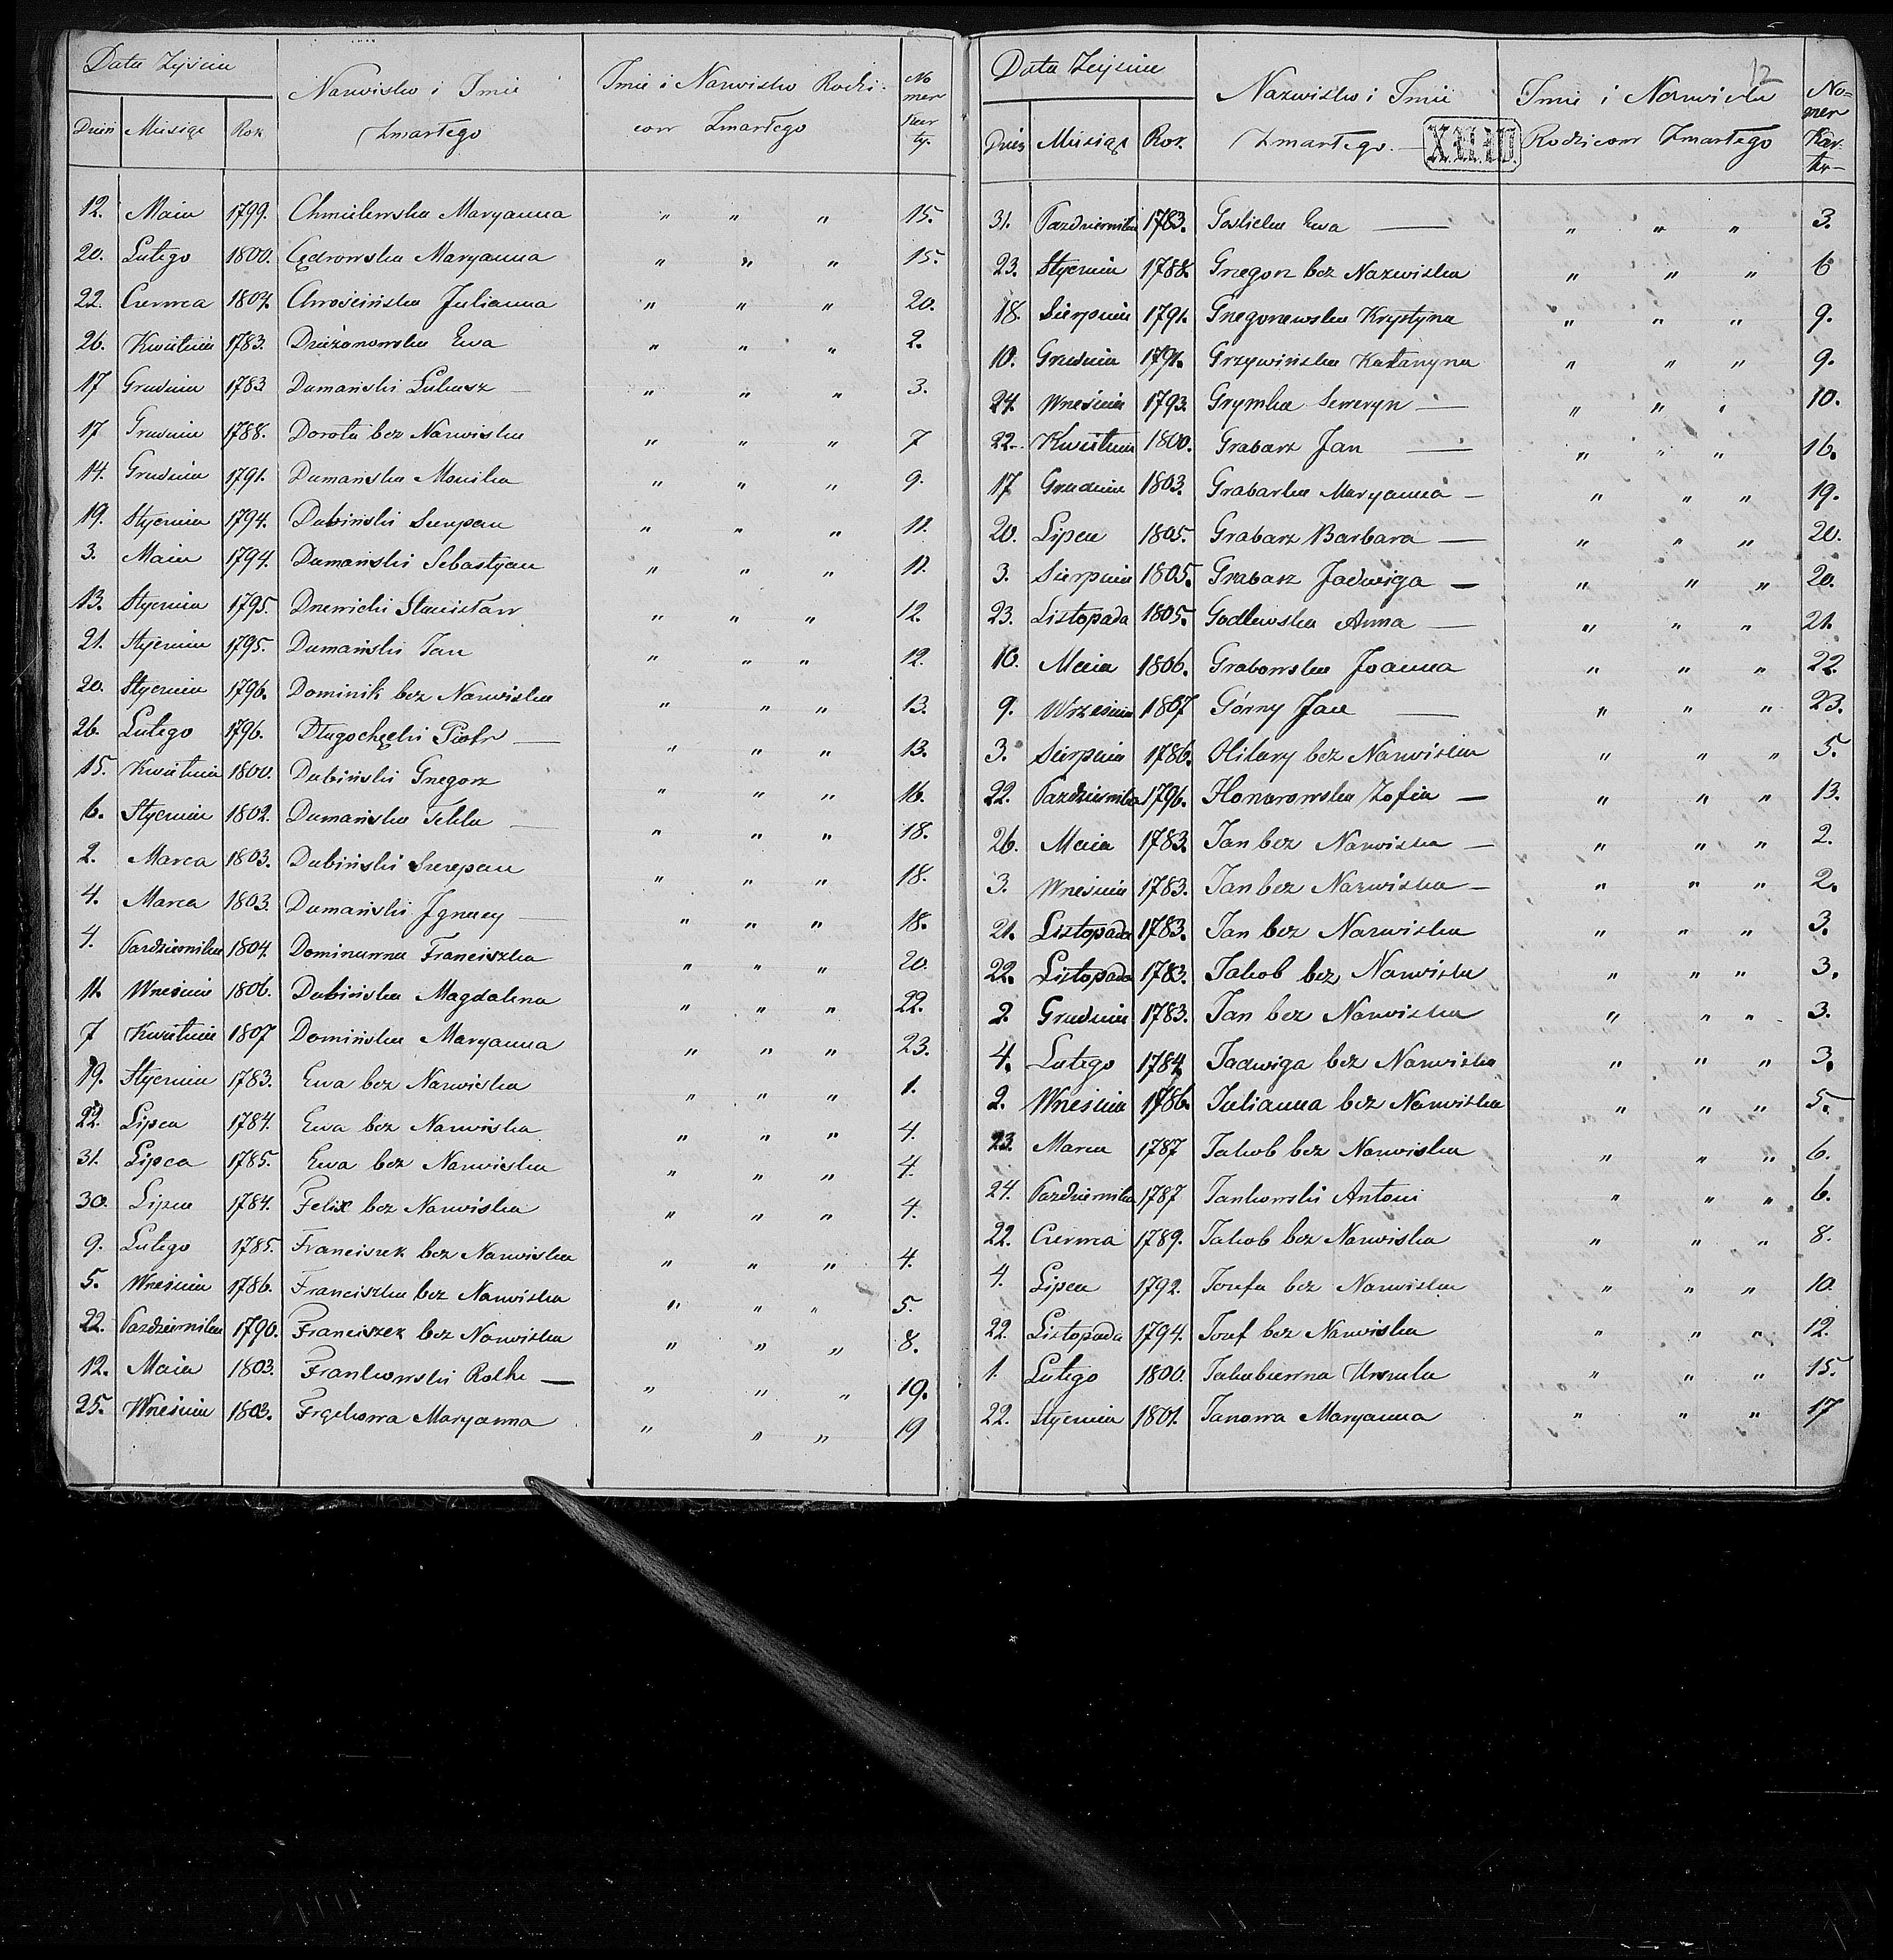 Data Zejścia
Dzień Miesiąc Rok Nazwisko i Imie Zmarłego Imie i Nazwisko Rodzicow Zmarłego Nomer Karty.
12. Maia 1799. Chmielewska Maryanna " " " 15.
20. Lutego 1800. Cędrowska Maryanna " " " 15.
22. Czerwca 1804. Chrościńska Julianna " " " 20.
26. Kwietnia 1783. Ewa " " " 2.
17 Grudnia 1783 Dumański Łukasz — " " " 3.
17 Grudnia 1788. Dorota bez Nazwiska " " " 7
14. Grudnia 1791. Dumańska Monika " " " 9.
19. Stycznia 1794. Dubiński Szczepan " " " 11.
3. Maia 1794. Dumański Sebastyan " " " 11.
13. Stycznia 1795. Drewicki Stanisław " " " 12.
21. Stycznia 1795. Dumański Jan " " " 12.
20. Stycznia 1796. Dominik bez Nazwiska " " " 13.
26. Lutego 1796. Długochęcki Piotr — " " " 13.
15. Kwietnia 1800. Dubiński Grzegorz " " " 16.
6. Stycznia 1802. Dumańska Tekla — " " " 18.
2. Marca 1803. Dubiński Szczepan " " " 18.
4. Marca 1803. Dumański Ignacy — " " " 18.
4. Pazdziernika 1804. Franciszka " " " 20.
11. Wrzesnia 1806. Dubińska Magdalena " " " 22.
7 Kwietnia 1807 Domińska Maryanna " " " 23.
19. Stycznia 1783. Ewa bez Nazwiska " " " 1.
22. Lipca 1784. Ewa bez Nazwiska " " " 4.
31. Lipca 1785. Ewa bez Nazwiska " " " 4.
30. Lipca 1784. Felix bez Nazwiska " " " 4.
9. Lutego 1785. Franciszek bez Nazwiska " " " 4.
5. Wrzesnia 1786. Franciszka bez Nazwiska " " " 5.
22. Pazdziernika 1790. Franciszek bez Nazwiska " " " 8.
12. Maia 1803. Frankowski — " " " 19.
25. Wrzesnia 1803. Maryanna " " " 19
12
Data Zejścia
Dzień Miesiąc Rok. Nazwisko i Imie Zmarłego. — Imie i Nazwisko Rodzicow Zmarłego Nomer Karty
31. Pazdziernika 1783. Ewa — " " " 3.
23. Stycznia 1788. Grzegorz bez Nazwiska " " " 6
18. Sierpnia 1791. Grzegorzewska Krystyna " " " 9.
10. Grudnia 1791. Grzywińska Katarzyna " " " 9.
24. Wrzesnia 1793. Grymka Seweryn — " " " 10.
22. Kwietnia 1800. Grabarz Jan — " " " 16.
17 Grudnia 1803. Grabarka Maryanna — " " " 19.
20. Lipca 1805. Grabarz Barbara — " " " 20.
3. Sierpnia 1805. Grabarz Jadwiga — " " " 20.
23. Listopada 1805. Godlewska Anna — " " " 21.
10. Maia 1806. Grabowska Joanna " " " 22.
9. Wrzesnia 1807 Górny Jan — " " " 23.
3. Sierpnia 1786. Hilary bez Nazwiska " " " 5.
22. Pazdziernika 1796. Zofia — " " " 13.
26. Maia 1783. Jan bez Nazwiska — " " " 2.
3. Wrzesnia 1783. Jan bez Nazwiska — " " " 2.
21. Listopada 1783. Jan bez Nazwiska " " " 3.
22. Listopada 1783. Jakob bez Nazwiska " " " 3.
2. Grudnia 1783. Jan bez Nazwiska " " " 3.
4. Lutego 1784 Jadwiga bez Nazwiska " " " 3.
2. Wrzesnia 1786. Julianna bez Nazwiska " " " 5.
23. Marca 1787 Jakob bez Nazwiska " " " 6.
24. Pazdziernika 1787 Jankowski Antoni " " " 6.
22. Czerwca 1789. Jakob bez Nazwiska " " " 8.
4. Lipca 1792. Jozefa bez Nazwiska " " " 10.
22. Listopada 1794. Jozef bez Nazwiska " " " 12.
1. Lutego 1800. Jakubierna Urszula " " " 15.
22. Stycznia 1801. Janowa Maryanna " " " 17